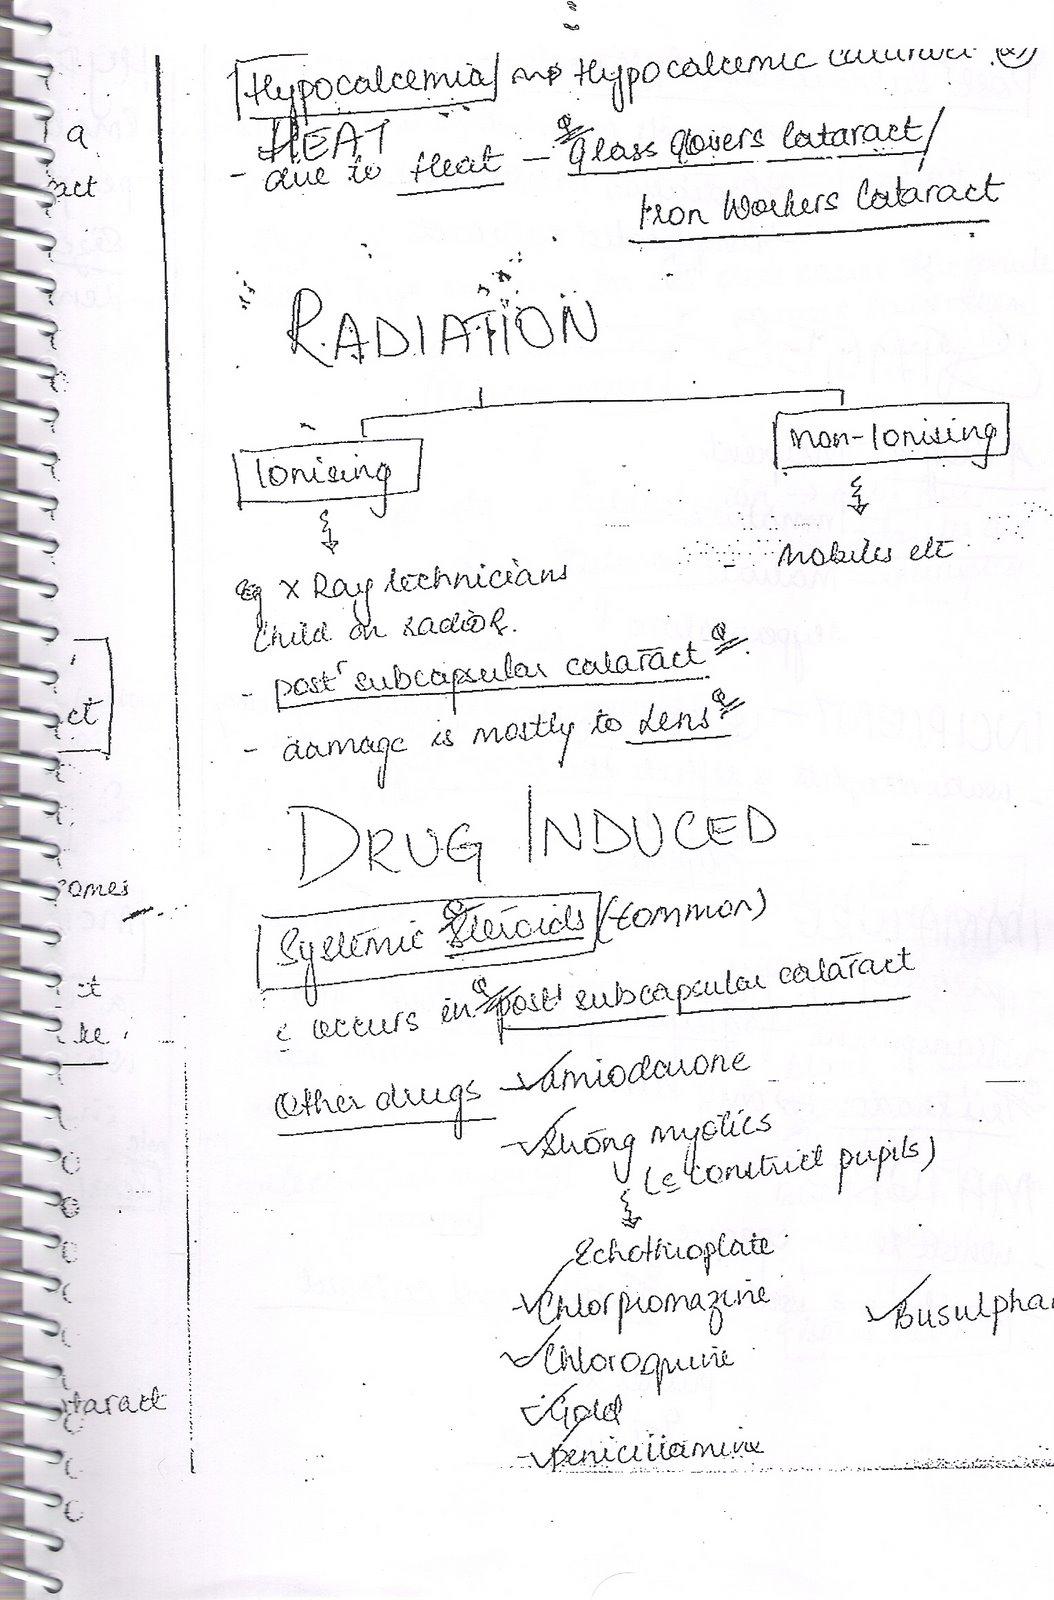 Hypocalcemia → Hypocalcemic
HEAT
- due to Heat - Glass Blowers Cataract/
Iron Workers Cataract
RADIATION
Ionising
Non-Ionising
eg X Ray technicians
- Mobiles etc
Child on radioR.
- post subcapsular cataract Q.
- damage is mostly to Lens Q
DRUG INDUCED
Systemic Steroids (common)
c occurs in post subcapsular cataract
Other drugs - Amiodarone
- Strong myotics
(c constrict pupils)
Echothioplate
- Chlorpromazine
- Busulphan
- Chloroquine
- Gold
- Penicillamine
a
act
ct
omes
taract